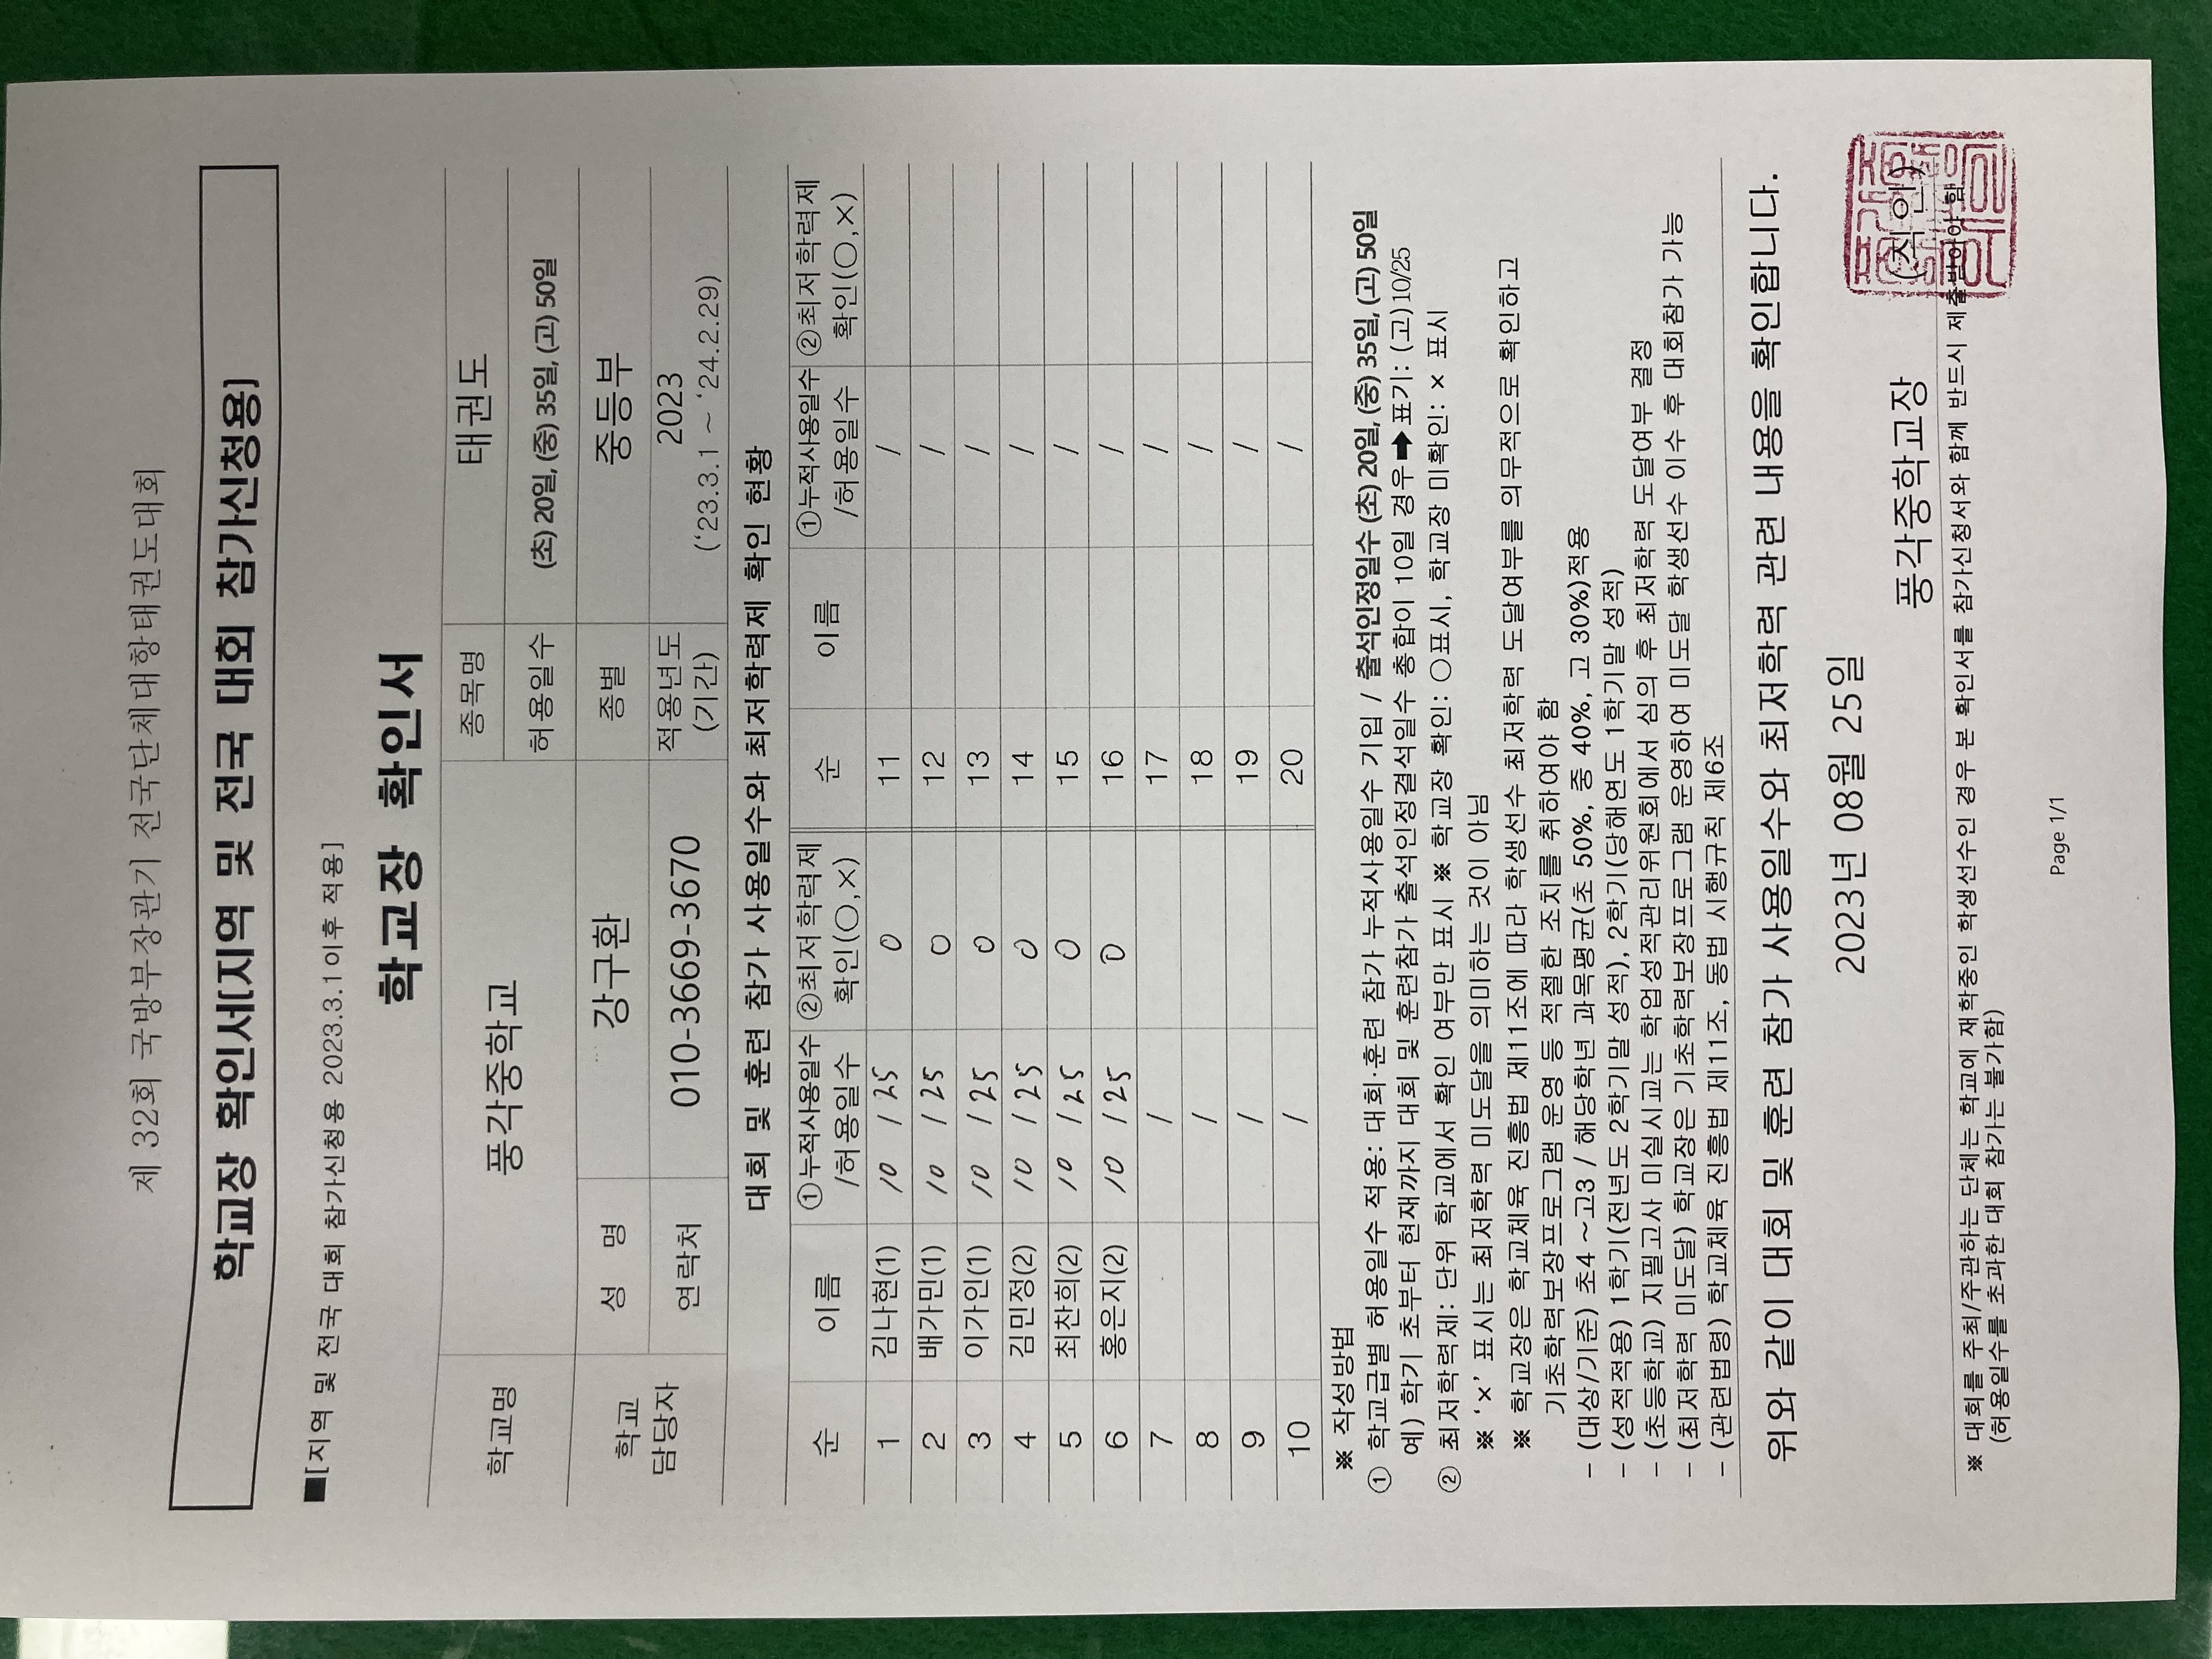 제 32회 국방부장관기 전국단체대항태권도대회
학교장 확인서[지역 및 전국 대회 참가신청용]
■[지역 및 전국 대회 참가신청용 2023.3.1이후 적용]
학교장 확인서
학교명 풍각중학교 종목명 태권도
허용일수 (초) 20일, (중) 35일, (고) 50일
학교 담당자 성 명 강구환 종별 중등부
연락처 010-3669-3670 적용년도 (기간) 2023 ('23.3.1 ~ '24.2.29)
대회 및 훈련 참가 사용일수와 최저학력제 확인 현황
순 이름 ①누적사용일수 /허용일수 ②최저학력제 확인(○,×) 순 이름 ①누적사용일수 /허용일수 ②최저학력제 확인(○,×)
1 김나현(1) 10 / 25 0 11 /
2 배가민(1) 10 / 25 0 12 /
3 이가인(1) 10 / 25 0 13 /
4 김민정(2) 10 / 25 0 14 /
5 최찬희(2) 10 / 25 0 15 /
6 홍은지(2) 10 / 25 0 16 /
7 / 17 /
8 / 18 /
9 / 19 /
10 / 20 /
※ 작성방법
① 학교급별 허용일수 적용: 대회·훈련 참가 누적사용일수 기입 / 출석인정일수 (초) 20일, (중) 35일, (고) 50일
예) 학기 초부터 현재까지 대회 및 훈련참가 출석인정결석일수 총합이 10일 경우 ➡ 표기: (고) 10/25
② 최저학력제: 단위 학교에서 확인 여부만 표시 ※ 학교장 확인: ○표시, 학교장 미확인: × 표시
※ '×' 표시는 최저학력 미도달을 의미하는 것이 아님
※ 학교장은 학교체육 진흥법 제11조에 따라 학생선수 최저학력 도달여부를 의무적으로 확인하고
기초학력보장프로그램 운영 등 적절한 조치를 취하여야 함
- (대상/기준) 초4 ~고3 / 해당학년 과목평균(초 50%, 중 40%, 고 30%)적용
- (성적적용) 1학기(전년도 2학기말 성적), 2학기(당해연도 1학기말 성적)
- (초등학교) 지필고사 미실시교는 학업성적관리위원회에서 심의 후 최저학력 도달여부 결정
- (최저학력 미도달) 학교장은 기초학력보장프로그램 운영하여 미도달 학생선수 이수 후 대회참가 가능
- (관련법령) 학교체육 진흥법 제11조, 동법 시행규칙 제6조
위와 같이 대회 및 훈련 참가 사용일수와 최저학력 관련 내용을 확인합니다.
2023년 08월 25일
풍각중학교장 (직인)
※ 대회를 주최/주관하는 단체는 학교에 재학중인 학생선수인 경우 본 확인서를 참가신청서와 함께 반드시 제출받아야 함
(허용일수를 초과한 대회 참가는 불가함)
Page 1/1